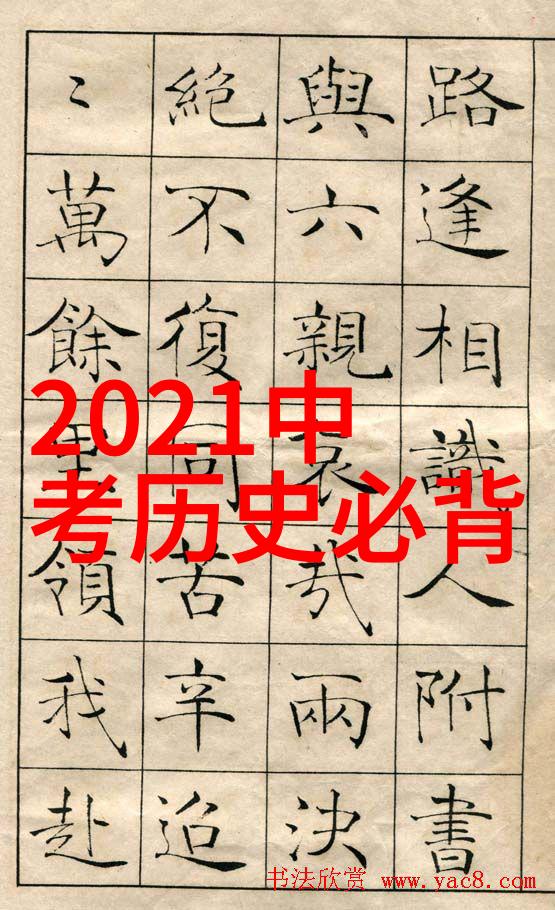 路逢相識人附書
與六親哀哉兩決
絕不復同苦辛迢
〻萬餘里領我赴
2021中
考历史必背
书法欣赏 www.yac8.com